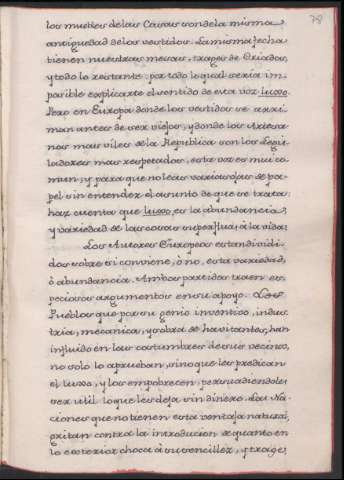 78
los muebles de las Casas son de la misma
antiguedad de los vestidos. La misma fecha
tienen nuestras mesas, trages de Criados,
y todo lo restante: por todo lo qual sería im-
posible explicarte el sentido de esta voz luxo.
Pero en Europa donde los vestidos se arri-
man antes de ser viejos, y donde los Artesa-
nos mas viles de la Republica son los Legis-
ladores mas respetados, esta voz es mui co-
mun; y para que no leas varias ojas de pa-
pel sin entender el asunto de que se trata:
haz cuenta que luxo, es la abundancia,
y variedad de las cosas superfluas á la vida.
Los Autores Europeos estan dividi-
dos sobre si conviene, ó no, esta variedad,
ó abundancia. Ambos partidos traen es-
peciosos argumentos en su apoyo. Los
Pueblos que por su genio inventivo, indus-
tria, mecanica, y sobra de havitantes, han
influido en las costumbres de sus vecinos,
no solo lo aprueban, sino que les predican
el luxo, y los empobrecen, persuadiendoles
ser util lo que les deja sin dinero. Las Na-
ciones que no tienen esta ventaja natural,
gritan contra la introducion de quanto en
lo exterior choca á su sencillez, y trage,